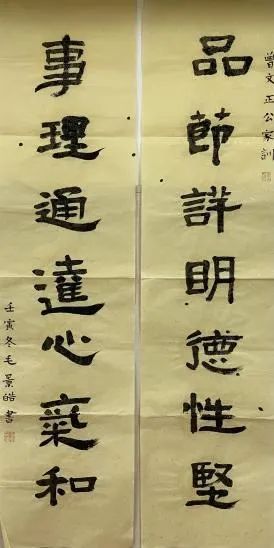 曾文正公家訓
品節詳明德性堅
事理通達心氣和
壬寅冬毛景皓書